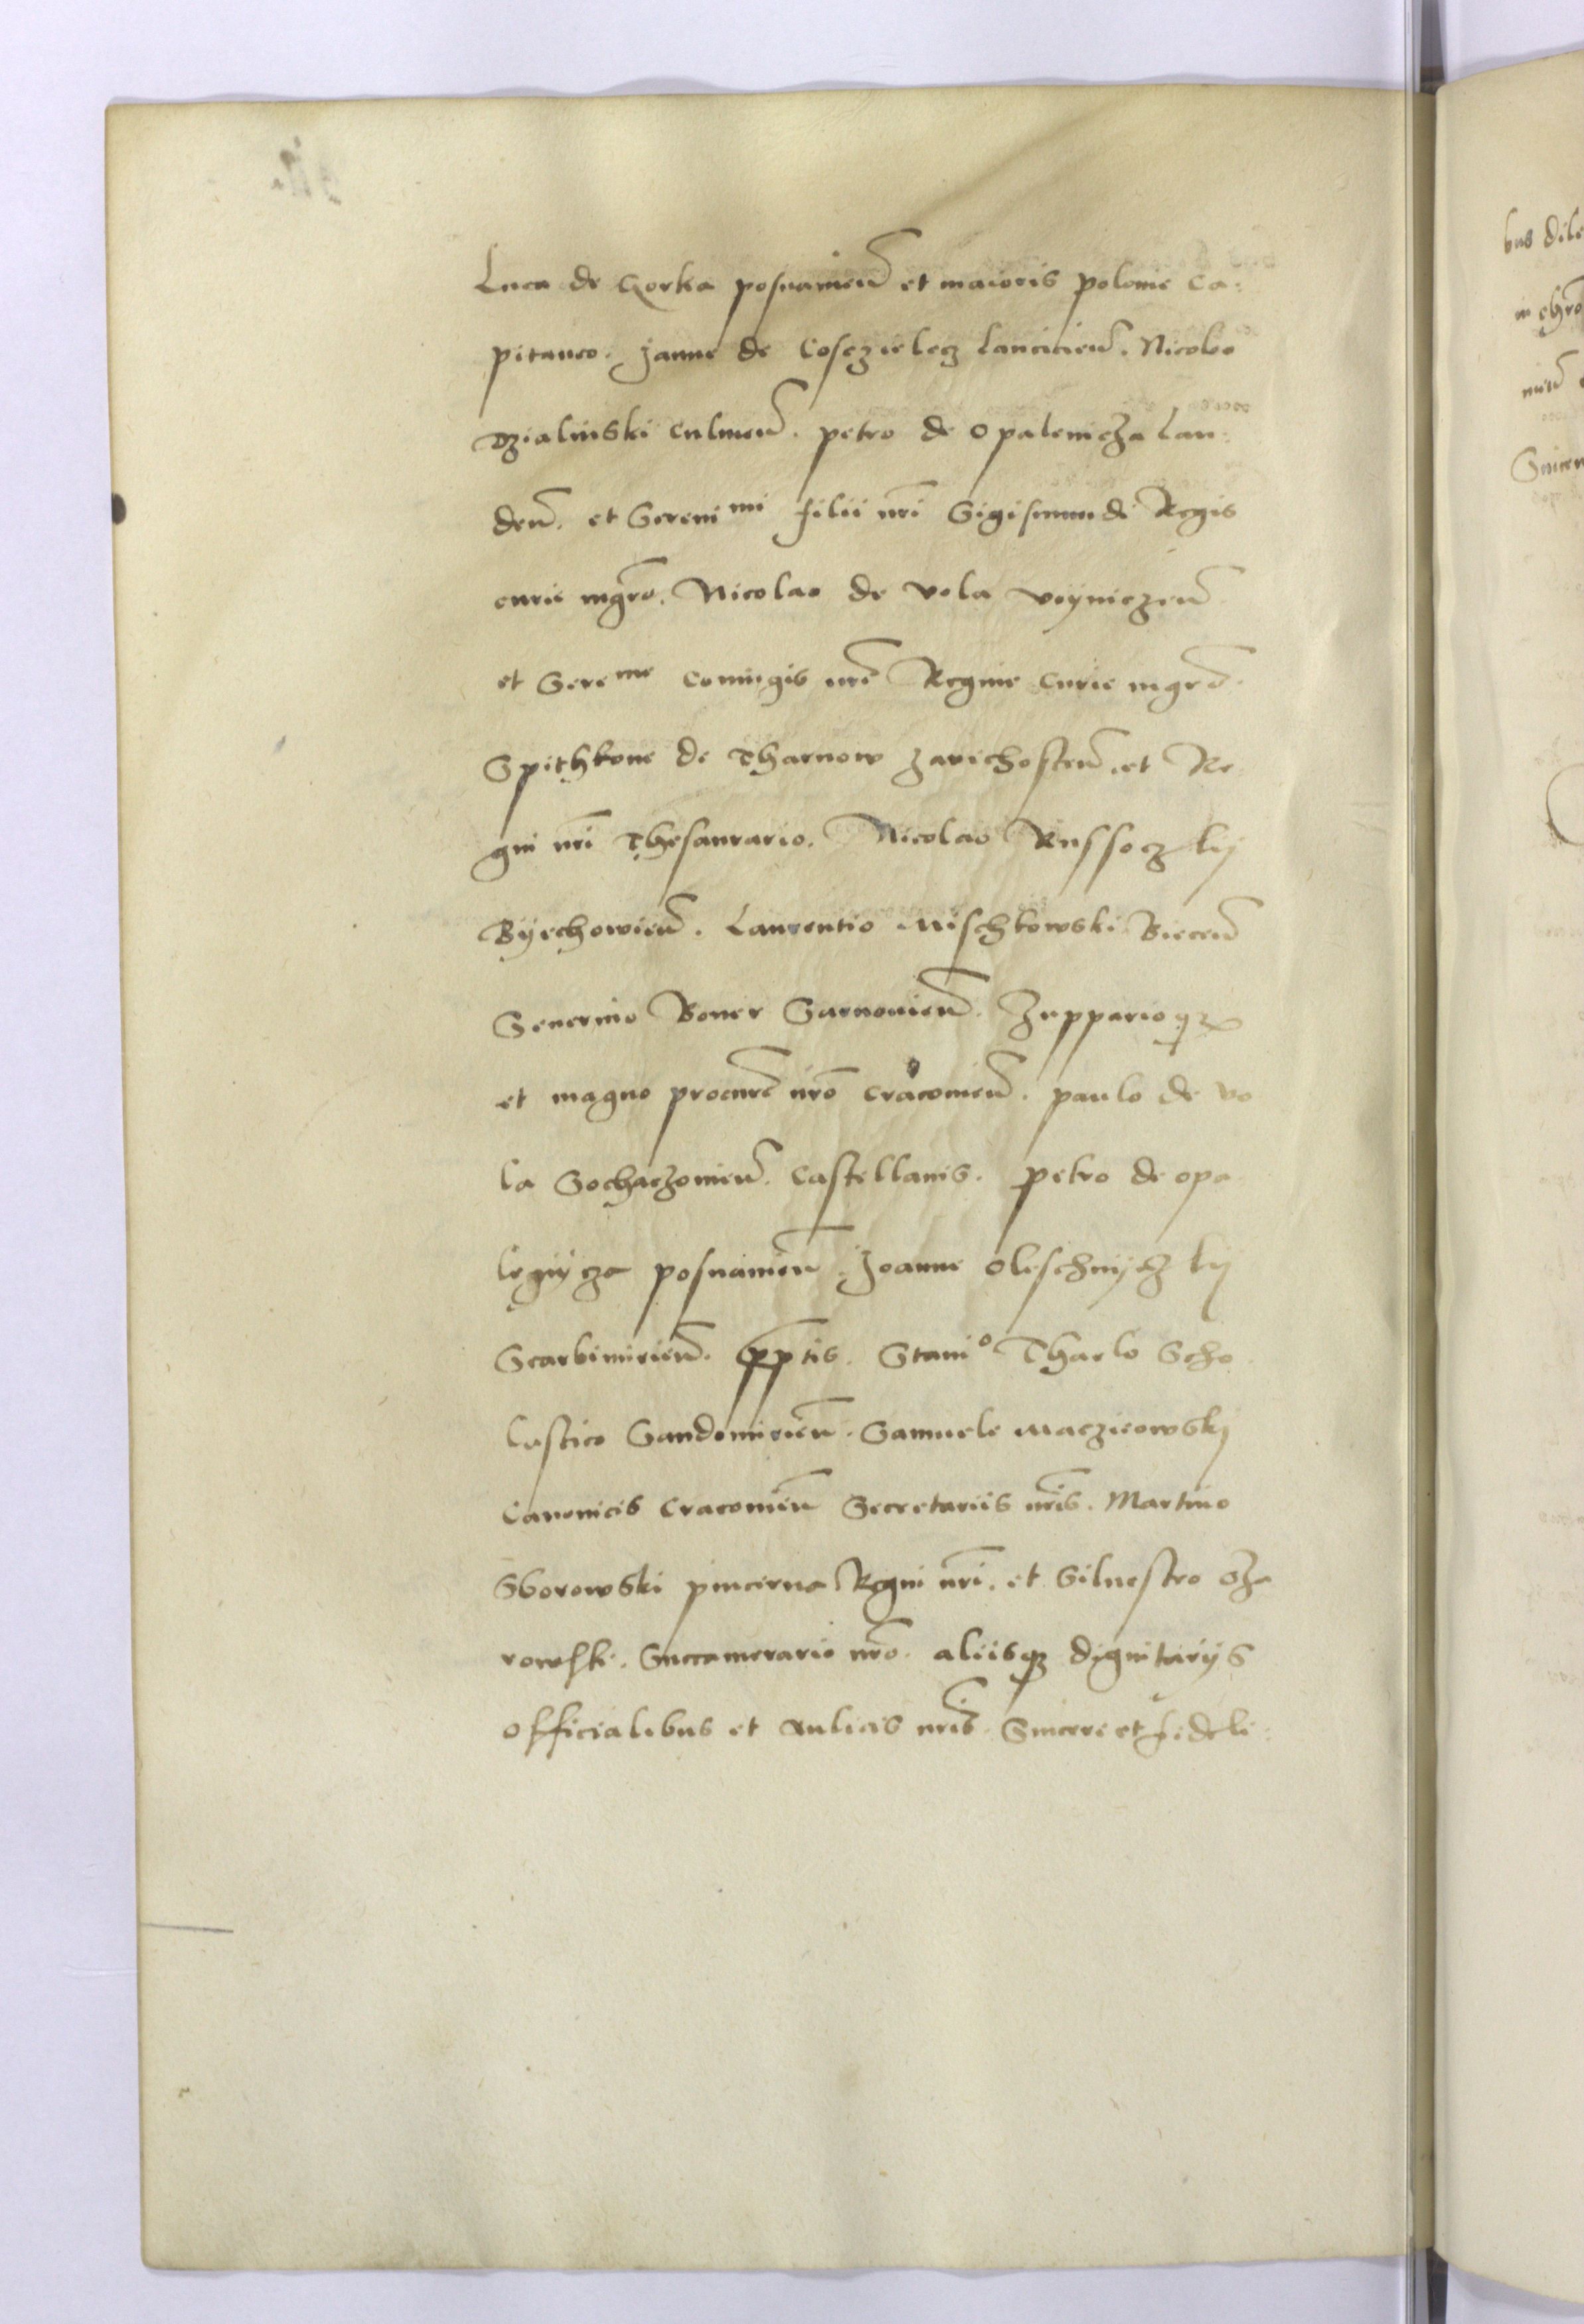 Luca de Gorka posnanien̄ et maioris polonie Ca:
pitaneo. Janne de Cosczielecz Lancicien̄. Nicolao
Dzialinski Culmen̄. petro de Opalenicza Lan:
den̄. et Sereni mi filii nr̄i Sigismundi Regis
curie mgr̄o. Nicolao de vola voyniczen̄
et Sere me coniugis nr̄e Regine curie mgrō.
Spithkone de Tharnow Zavichosten̄. et Re
gni nr̄i Thesaurario. Nicolao Russoczkij
Byechowien̄. Laurentio Mischkowski Biecen̄
Severino Boner Sarnovien̄. Zuppario
et magno procur̄e nr̄o cracovien̄. paulo de vo
la Sochaczovien̄. Castellanis. petro de opa
lenycza posnanien̄. Joanne Oleschnyczkij
Scarbimirien̄. p̄p̄tis. Stani o Tharlo Scho
lastico Sandomirien̄. Samuele Maczieowskj
Canonicis Cracovien̄ Secretariis nr̄is. Martino
Sborowski pincerna Regni nr̄i. et Silvestro Oza
rowski. Succamerario nr̄o. aliisqȝ dignitariis
officialibus et aulicis nr̄is. Sincere et fideli:
bus dile
in
Sincer